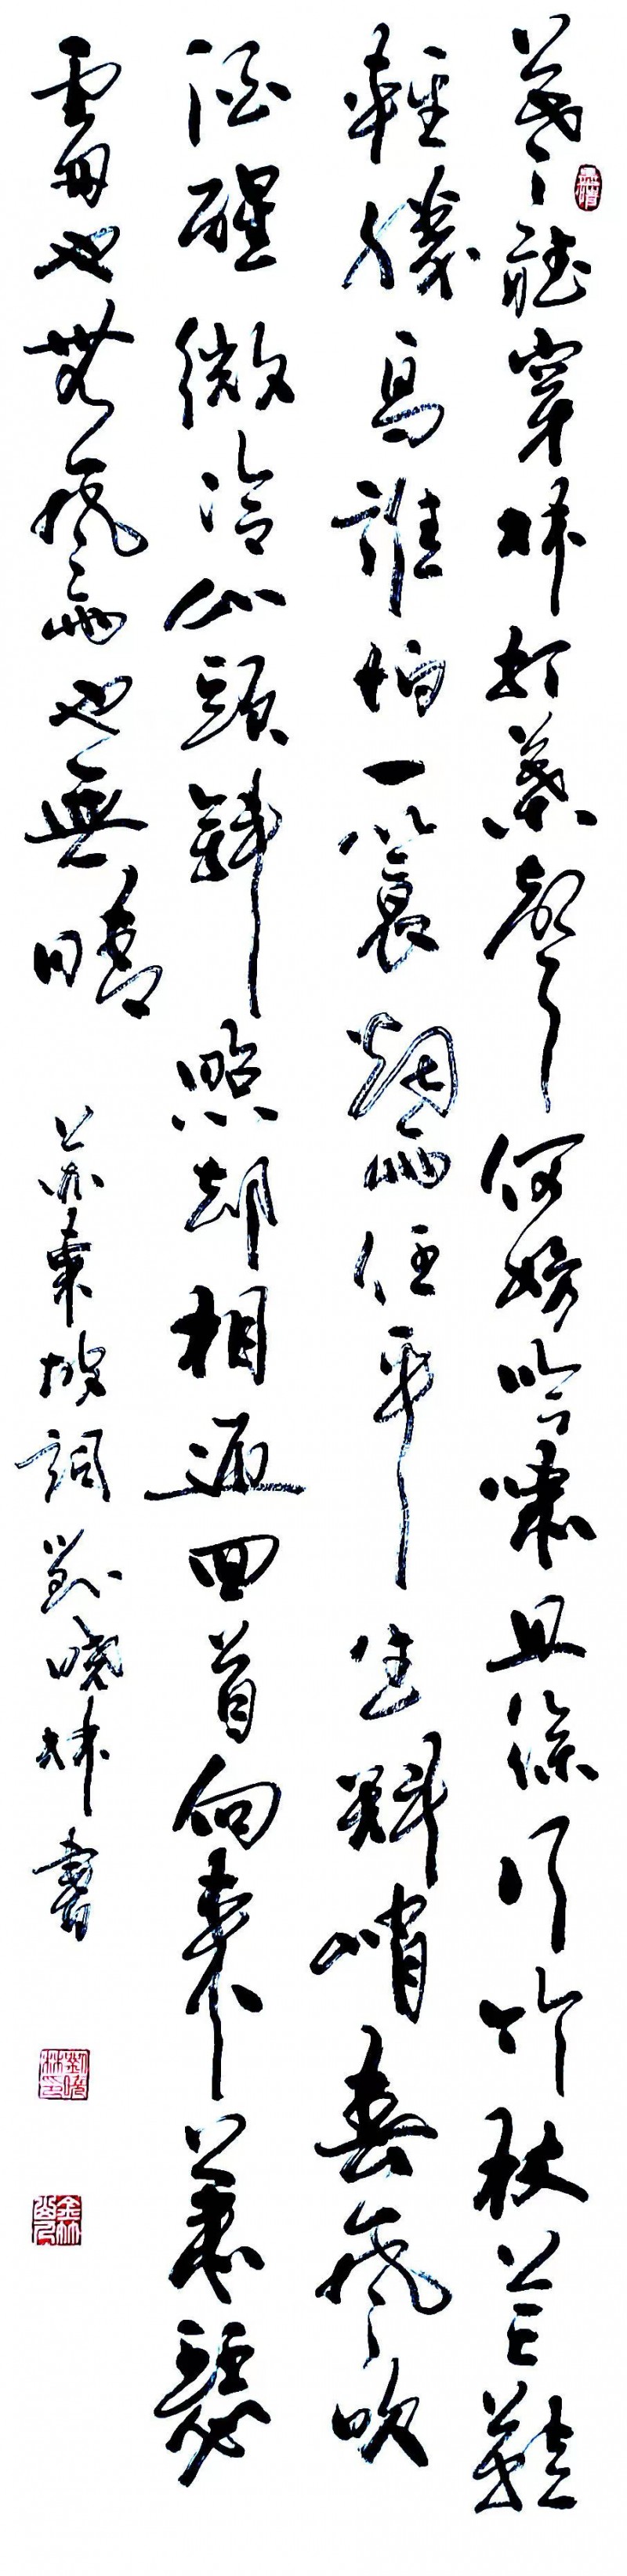 莫聽穿林打葉聲何妨吟嘯且徐行竹杖芒鞋
輕勝馬誰怕一蓑烟雨任平生料峭春風吹
酒醒微冷山頭斜照却相迎回首向來蕭瑟
處也無風雨也無晴 蘇東坡詞 劉曉林書
劉曉林印